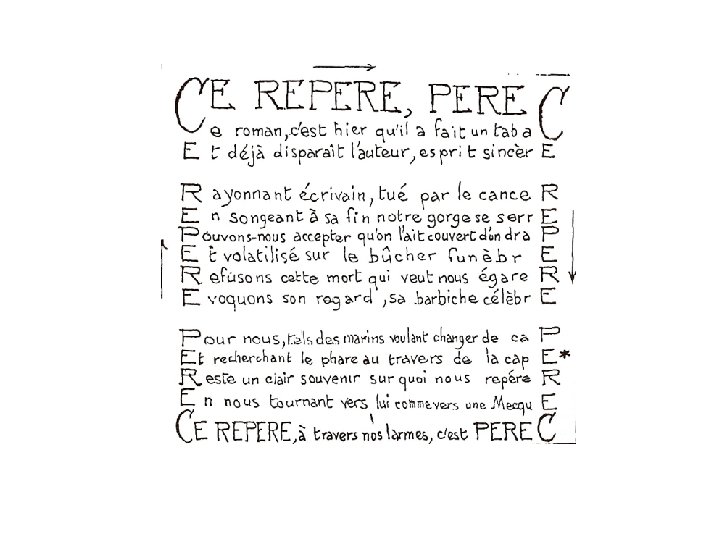 CE REPERE, PEREC
Ce roman, c'est hier qu'il a fait un tabaC
Et déjà disparaît l'auteur, esprit sincèrE
Rayonnant écrivain, tué par le canceR
En songeant à sa fin notre gorge se serrE
Pouvons-nous accepter qu'on l'ait couvert d'un draP
Et volatilisé sur le bûcher funèbrE
Refusons cette mort qui veut nous égareR
Evoquons son regard, sa barbiche célèbrE
Pour nous, tels des marins voulant changer de caP
Et recherchant le phare au travers de la capE*
Reste un clair souvenir sur quoi nous repéreR
En nous tournant vers lui comme vers une MecquE
CE REPERE, à travers nos larmes, c'est PEREC